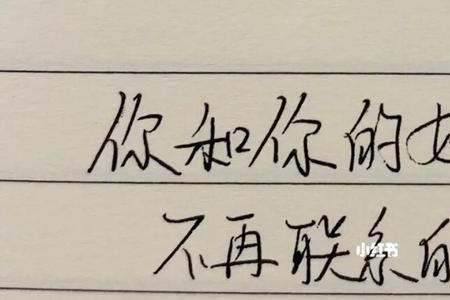 你和你的
不再联系的
小红书